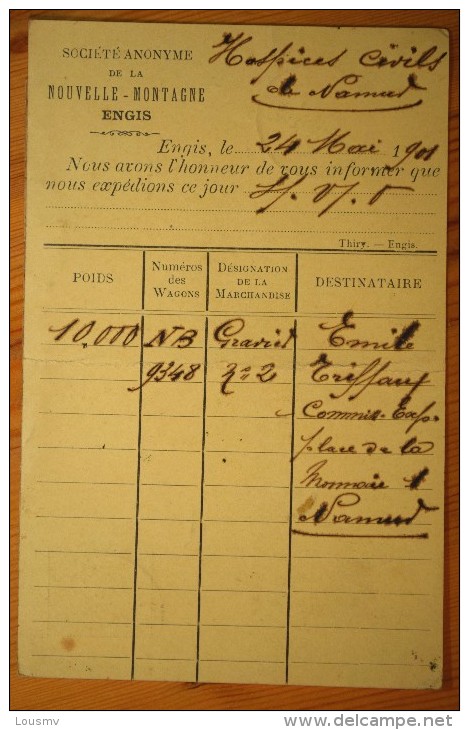 SOCIÉTÉ ANONYME
DE LA
NOUVELLE - MONTAGNE
ENGIS
Hospices Civils
de Namur
Engis, le 24 Mai 1901
Nous avons l'honneur de vous informer que
nous expédions ce jour
Thiry. — Engis.
POIDS Numéros des Wagons DÉSIGNATION DE LA MARCHANDISE DESTINATAIRE
10,000 NB Gravier Emile
9348 No 2 Triffaux
Commis. Exp.
place de la
Monnaie
Namur
Lousmv
delcampe.net